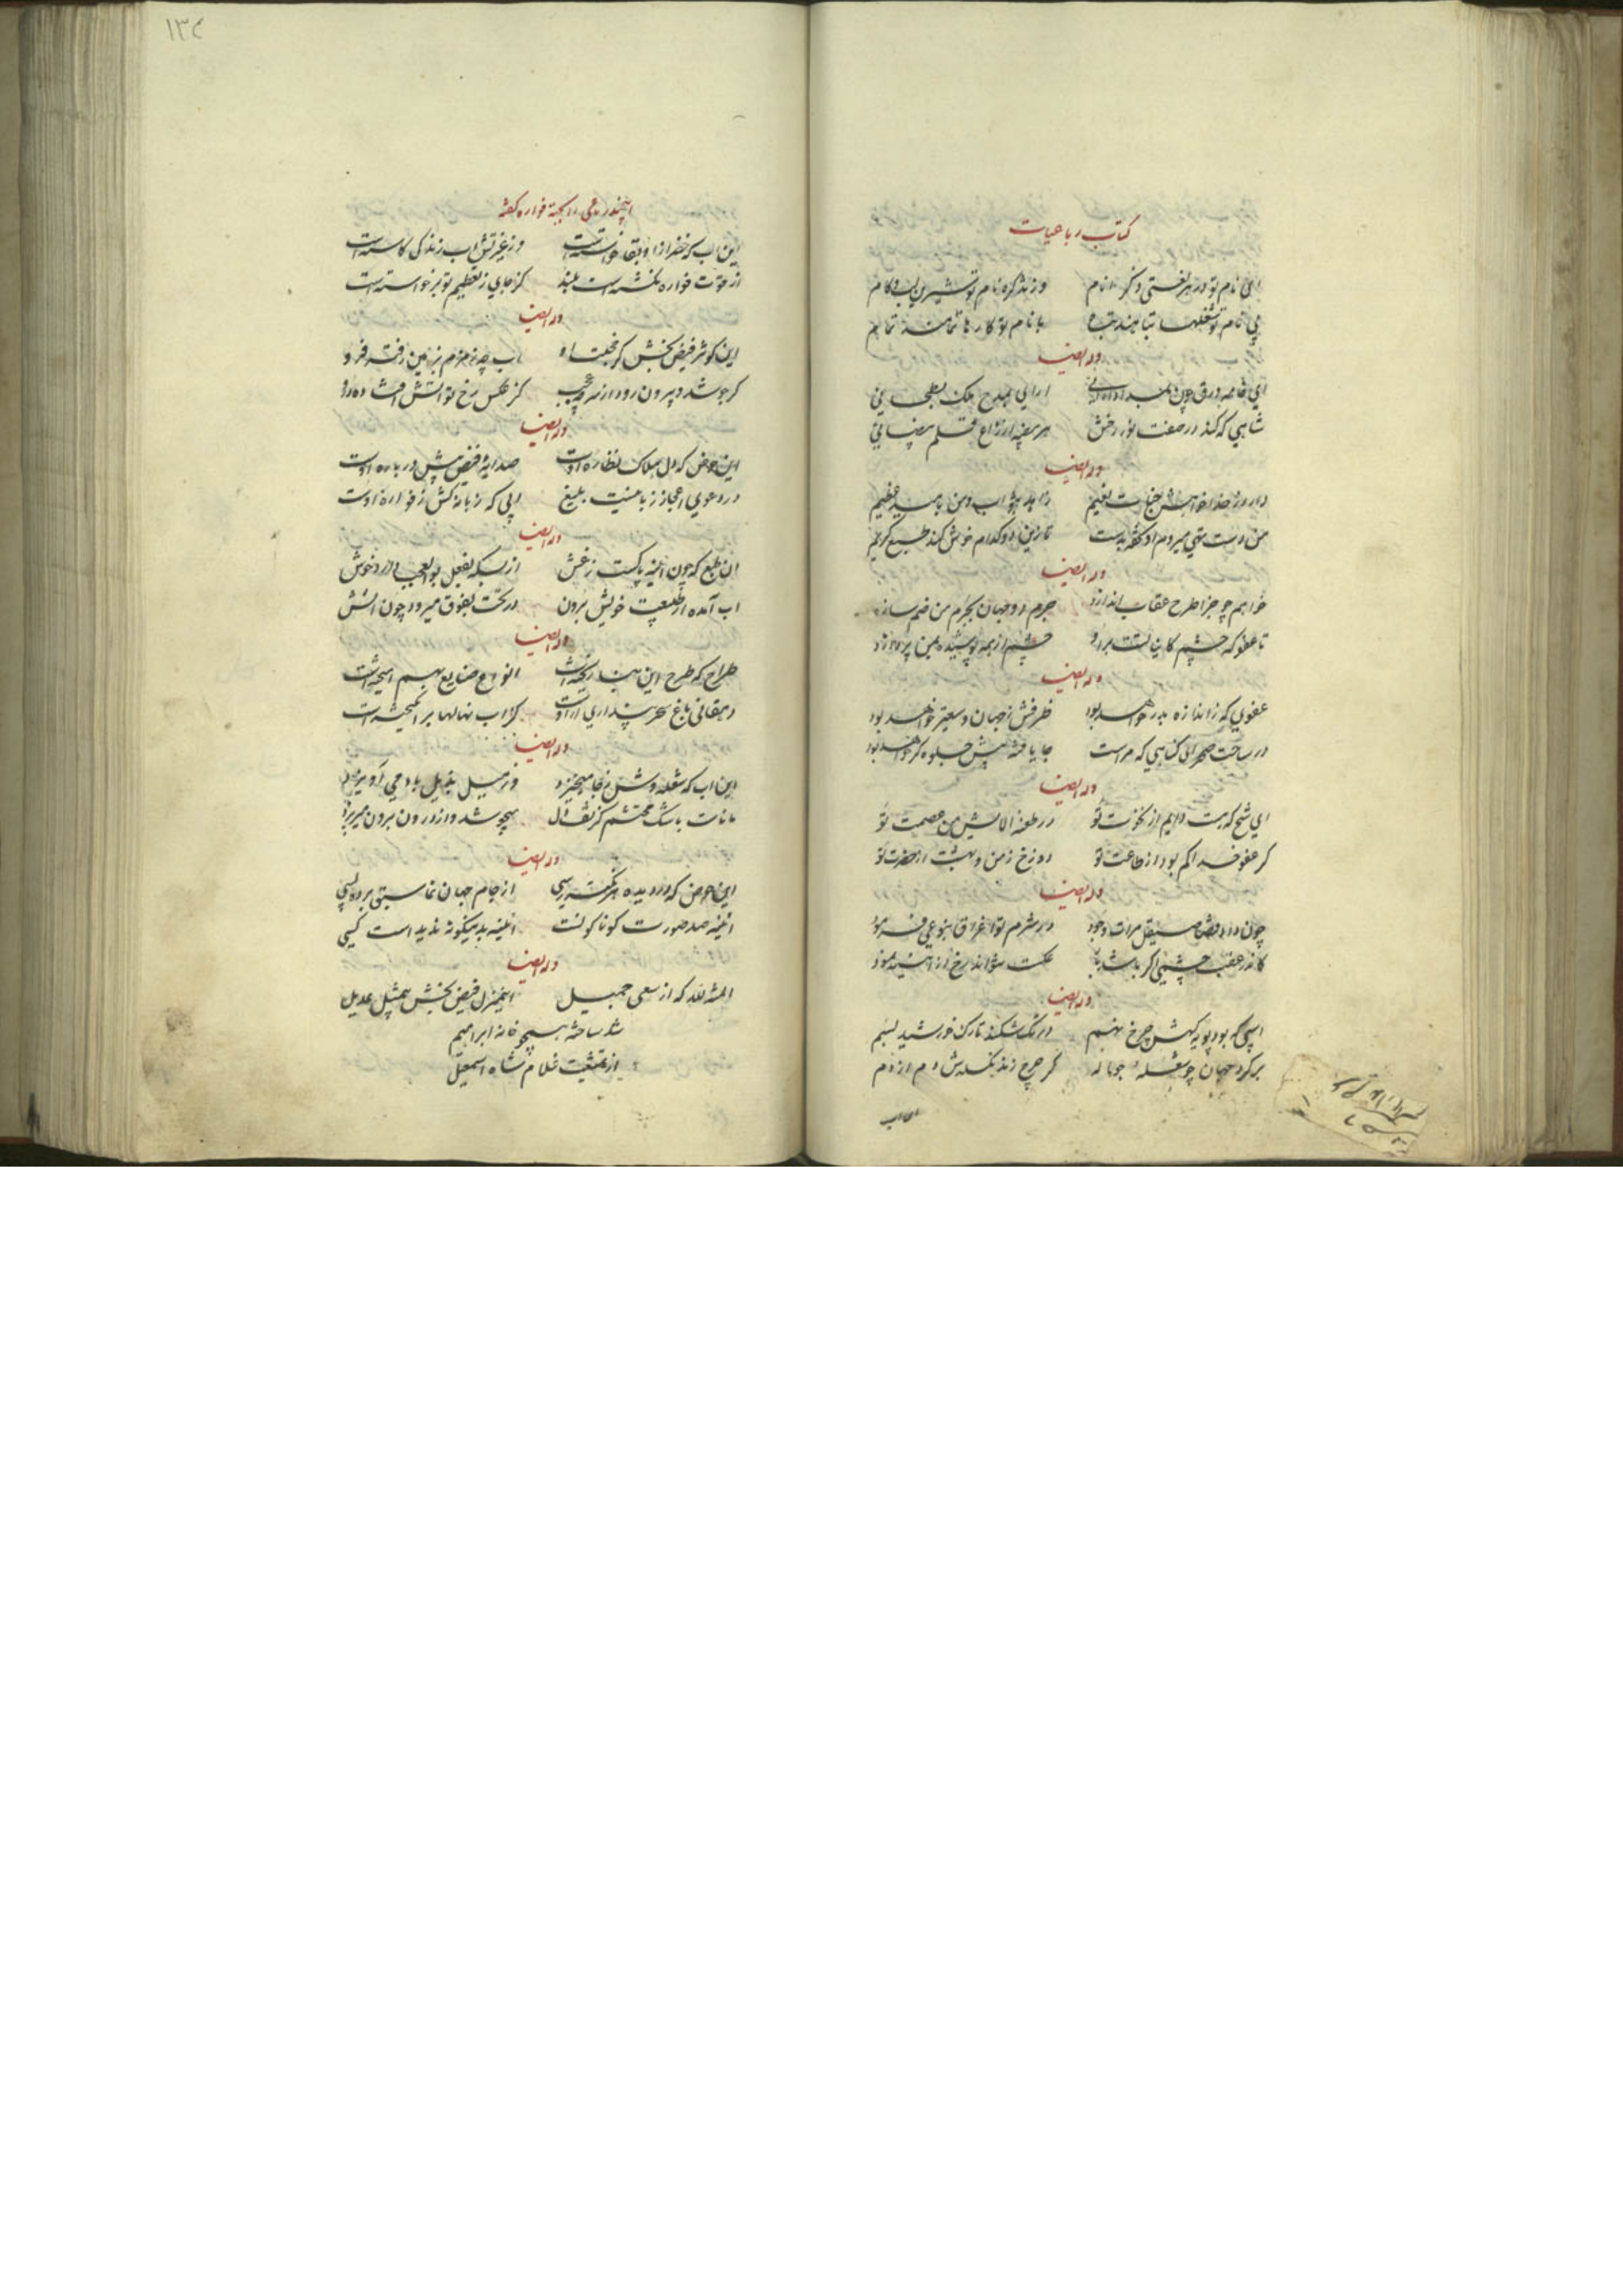 کتاب رباعیات
ای نام تو در هر لغتی ذکر انام
وز تذکره نام تو شیرین لب و کام
بی نام تو شغلها تباهند تباه
با نام تو کارها تمامند تمام
وله ایضا
ای خامه ورق چون
ارایی بمدح ملک بطحایی
شاهی که کند در صفت نور رخش
هر بیضه
وله ایضا
دارد ز خدا خواهش جنات نعیم
زاهد بثواب و من بامید عظیم
من دست تهی میروم او تحفه بدست
تا زین دو کدام خوش کند طبع کریم
وله ایضا
خواهم چو جزا طرح عقاب اندازد
جرم دو جهان بجرم من ضم سازد
تا عفو که چشم کاینات است برو
چشم از همه پوشیده بمن پردازد
وله ایضا
عفوی که ز اندازه بدر خواهد بود
ظرفش ز جهان وسیعتر خواهد بود
در ساحت صحرای گناهی که مراست
جا یافته پیش جلوه گر خواهد بود
وله ایضا
ای شیخ که هست دایم از نخوت تو
در طعنه الایش من عصمت تو
گر عفو خدا کم بود از طاعت تو
دوزخ ز من و بهشت از حضرت تو
وله ایضا
چون داد قضا صیقل مرات وجود
در شرم تو اغراق بنوعی فرمود
کاندر عقب چشمی اگر باشد باز
عکست نتواند رخ از آینه نمود
وله ایضا
اسبی که بود پویه گهش چرخ نهم
در تک شکند تارک خورشید بسم
بر گرد جهان چو شعله جواله
گر چرخ زند نگسلدش دم از دم
این اب
۱۳۴
این چند رباعی را بجهة فواره گفته
این اب که خضر از او بقا خواسته است
وز غیرتش اب زندگی کاسته است
از قوت فواره نگشته است بلند
کز جای ز تعظیم تو برخواسته است
وله ایضا
این کوثر فیض بخش کز خجلت او
اب چه زمزم بزمین رفته فرو
گر جوشد و بیرون رود از سر چه عجب
کز عکس رخ تو اتش افتاده درو
وله ایضا
این حوض که دل هلاک نظاره اوست
صد ایه فیض بیش در باره اوست
در دعوی اعجاز زبانیست بلیغ
ابی که زبانه کش ز فواره اوست
وله ایضا
ان طبع که چون اینه پاکست ز غش
از بسکه بفعل بوالعجب دارد خوش
اب آمده از طبیعت خویش برون
در تحت بفوق میرود چون اتش
وله ایضا
طراح که طرح این بنا ریخته است
انواع صنایع بهم امیخته است
دهقانی باغ سحر پنداری ازوست
کز اب نهالها برانگیخته است
وله ایضا
این اب که شعله وش ز جا میخیزد
وز میل بذیل باد می آویزد
ماناست باشک محتشم کز تف دل
میجوشد و از درون برون میریزد
وله ایضا
این حوض که در دیده هر نکته رسی
از جام جهان نما سبق برده بسی
ائینه صد صورت گوناگونست
ائینه بدینگونه ندیده است کسی
وله ایضا
المنة لله که از سعی جمیل
این منزل فیض بخش بیمثل عدیل
شد ساخته همچو خانه ابراهیم
از تمشیت غلام شاه اسمعیل